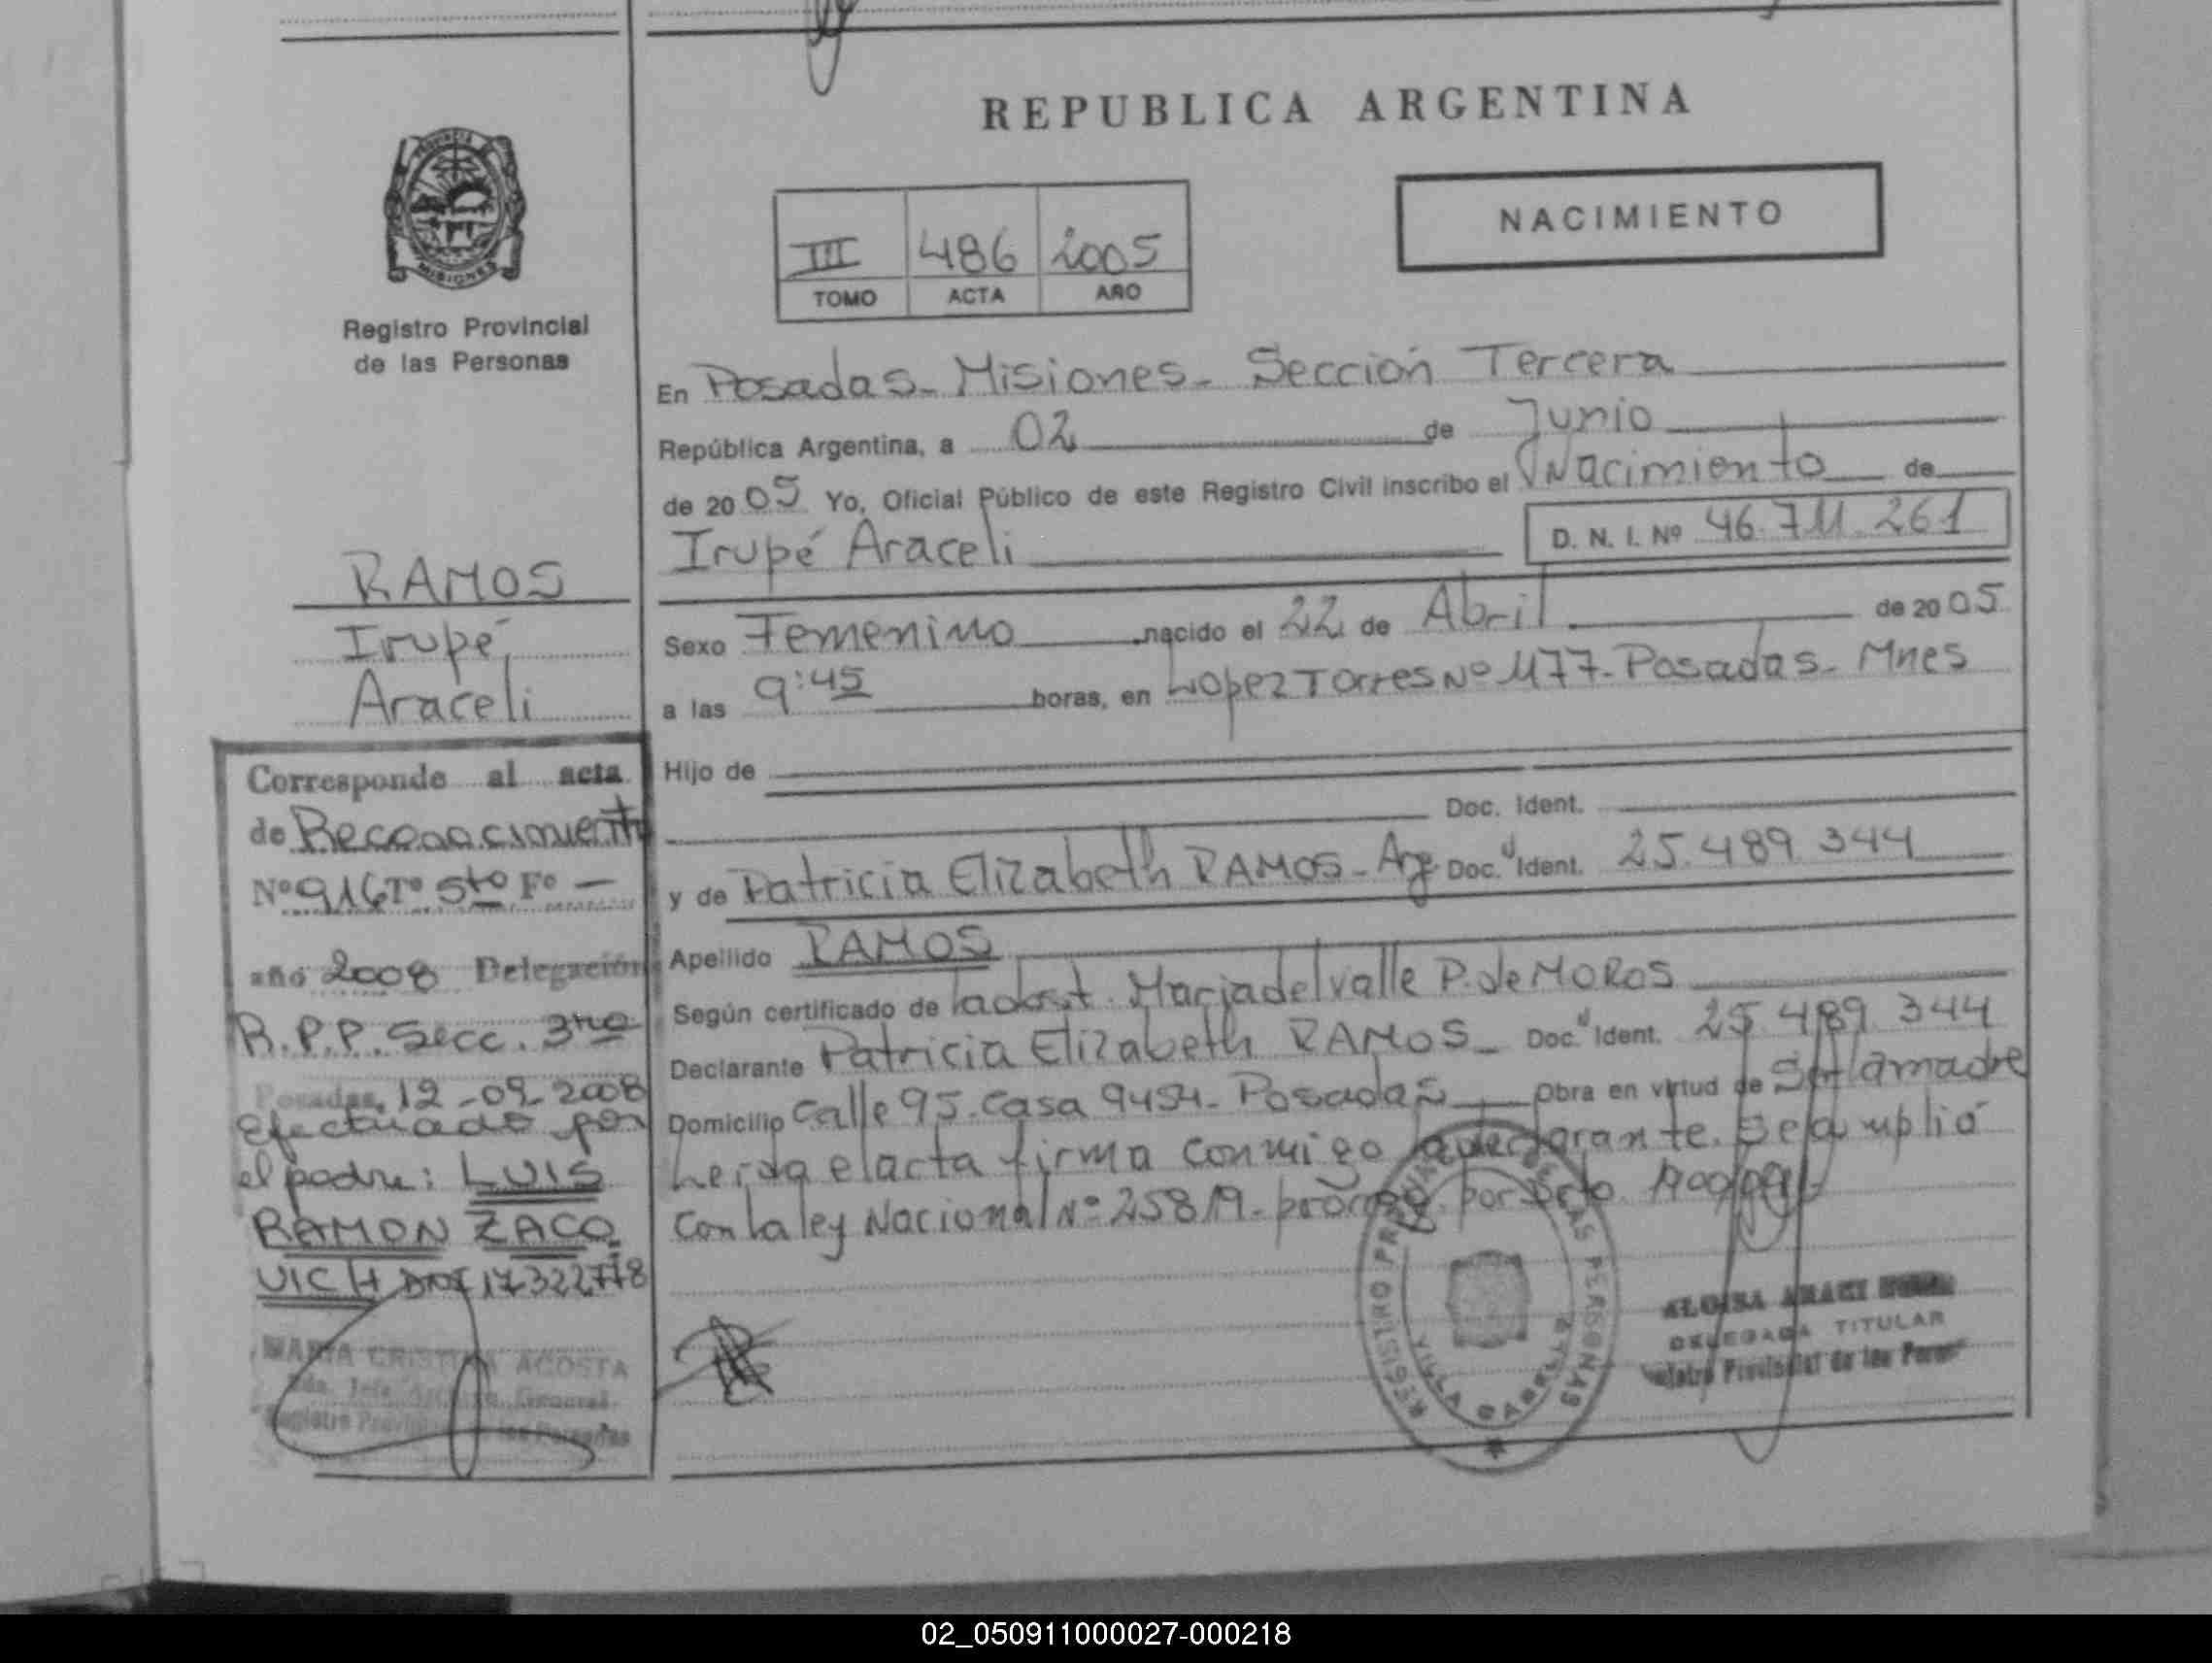 REPUBLICA ARGENTINA
NACIMIENTO
III 486 2005
TOMO ACTA AÑO
PROVINCIA
MISIONES
Registro Provincial
de las Personas
En Posadas - Misiones - Sección Tercera
República Argentina, a 02 de Junio
de 2005 Yo, Oficial Público de este Registro Civil inscribo el Nacimiento de
Irupé Araceli D. N. I. Nº 46.711.261
Sexo Femenino nacido el 22 de Abril de 2005
a las 9:45 horas, en Lopez Torres Nº 1177 - Posadas - Mnes
Hijo de
Doc. Ident.
y de Patricia Elizabeth RAMOS - Arg Doc. Ident. 25.489.344
Apellido RAMOS
Según certificado de la obst. Maria del valle P. de MOROS
Declarante Patricia Elizabeth RAMOS - Doc. Ident. 25.489.344
Domicilio Calle 95. Casa 9454 - Posadas Obra en virtud de Ser la madre
Leida el acta firma conmigo la declarante. Se amplió
Con la ley Nacional Nº 25819 - por Dcto
RAMOS
Irupé
Araceli
Corresponde al acta
de Reconocimiento
Nº 916 Tº 5to Fº -
año 2008 Delegación
R.P.P. Secc. 3ra
Posadas, 12-09-2008
Efectuado por
el padre: LUIS
RAMON ZACO
VICH DNI 17322778
MARIA CRISTINA ACOSTA
Registro Provincial de las Personas
REGISTRO PROVINCIAL DE LAS PERSONAS
VILLA CABELLO
DELEGADA TITULAR
Registro Provincial de las Personas
02_050911000027-000218